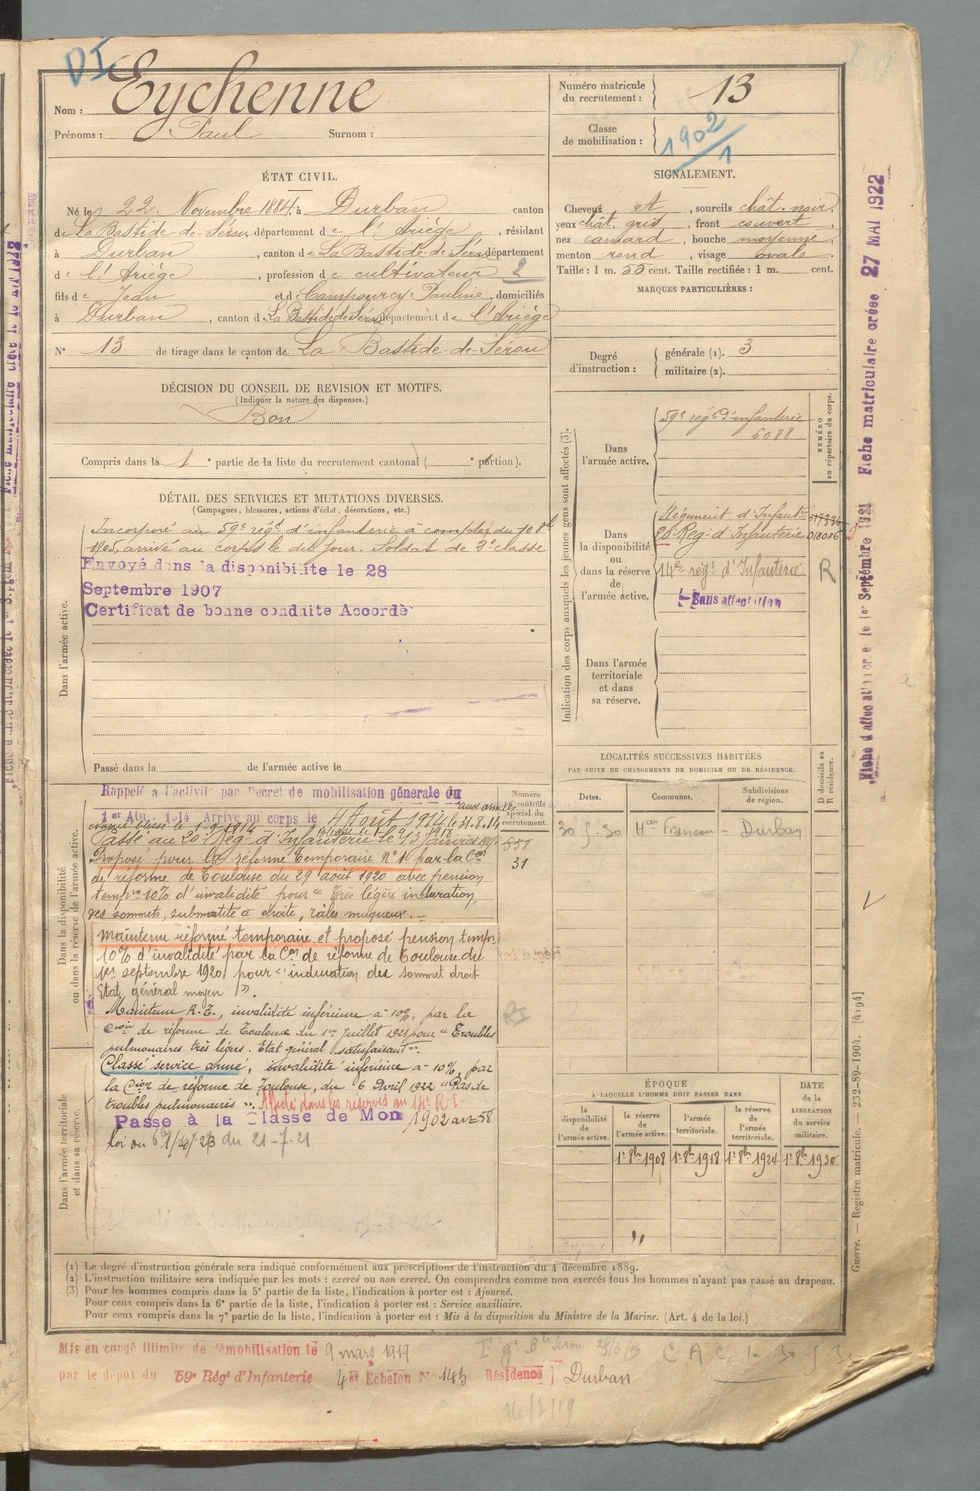 DI
Nom : Eychenne
Prénoms : Paul Surnom :
Numéro matricule du recrutement : 13
Classe de mobilisation : 1902
ÉTAT CIVIL.
Né le 22 Novembre 1884, à Durban canton
de La Bastide-de-Sérou département de l'Ariège, résidant
à Durban, canton de La Bastide-de-Sérou département
de l'Ariège, profession de cultivateur 2
fils de Jean et de Campourcy Pauline, domiciliés
à Durban, canton de La Bastide de Sérou département de l'Ariège
N° 13 de tirage dans le canton de La Bastide-de-Sérou
SIGNALEMENT.
Cheveux et, sourcils chât. noir
yeux chât. gris, front couvert
nez camard, bouche moyenne
menton rond, visage ovale
Taille : 1 m. 55 cent. Taille rectifiée : 1 m. cent.
MARQUES PARTICULIÈRES :
Degré d'instruction : générale (1). 3
militaire (2).
DÉCISION DU CONSEIL DE REVISION ET MOTIFS.
(Indiquer la nature des dispenses.)
Bon
Compris dans la 1e partie de la liste du recrutement cantonal ( e portion).
DÉTAIL DES SERVICES ET MUTATIONS DIVERSES.
(Campagnes, blessures, actions d'éclat, décorations, etc.)
Dans l'armée active.
Incorporé au 59e régt d'infanterie à compter du 7 8bre
1905, arrivé au corps le dit jour. Soldat de 2e classe
Envoyé dans la disponibilité le 28
Septembre 1907
Certificat de bonne conduite Accordé
Passé dans la de l'armée active le
Indication des corps auxquels les jeunes gens sont affectés (3).
NUMÉRO au répertoire du corps.
Dans l'armée active.
59e régt d'infanterie
6088
Dans la disponibilité ou dans la réserve de l'armée active.
Régiment d'Infanterie
20e Reg. d'Infanterie 018086
14e régt d'Infanterie R
Sans affectation
Dans l'armée territoriale et dans sa réserve.
Dans la disponibilité ou dans la réserve de l'armée active.
Rappelé à l'activité par Décret de mobilisation générale du
1er AOUT 1914 Arrivé au corps le 4 Août 1914 aux armées
le 31.8.14
Passé au 20e Reg. d'Infanterie le
Proposé pour la réforme temporaire N° 1 par la Con
de réforme de Toulouse du 29 août 1920 avec pension
tempre 10% d'invalidité pour " très légère induration
des sommets, submatité à droite, râles muqueux. -
Maintenu réformé temporaire et proposé pension tempre
10% d'invalidité par la Con de réforme de Toulouse du
1er septembre 1920 pour " induration des sommet droit
Etat général moyen ".
Maintenu R.T., invalidité inférieure à 10%, par la
Con de réforme de Toulouse du 1er Juillet 1921 pour " Troubles
pulmonaires très légers. Etat général satisfaisant ".
Classé service armé, invalidité inférieure à 10%, par
la Con de réforme de Toulouse, du 6 Avril 1922 " Pas de
troubles pulmonaires ". Affecté dans les réserves au 14e R.I.
Passé à la Classe de Mon 1902 art 58
loi du du 21-7-21
Dans l'armée territoriale et dans sa réserve.
Numéro au contrôle spécial du recrutement.
581
31
LOCALITÉS SUCCESSIVES HABITÉES
PAR SUITE DE CHANGEMENTS DE DOMICILE OU DE RÉSIDENCE.
Dates. Communes. Subdivisions de région. D domicile ou R résidence.
30.5.30 Durban
ÉPOQUE
À LAQUELLE L'HOMME DOIT PASSER DANS
la disponibilité de l'armée active. la réserve de l'armée active. l'armée territoriale. la réserve de l'armée territoriale. DATE de la LIBÉRATION du service militaire.
1er 8bre 1908 1er 8bre 1918 1er 8bre 1924 1er 8bre 1930
Fiche matriculaire créée 27 MAI 1922
Fiche d'affectation créée le 1er Septembre 1921
Guerre. — Registre matricule. — 232-89-1904. [4194]
(1) Le degré d'instruction générale sera indiqué conformément aux prescriptions de l'instruction du 4 décembre 1889.
(2) L'instruction militaire sera indiquée par les mots : exercé ou non exercé. On comprendra comme non exercés tous les hommes n'ayant pas passé au drapeau.
(3) Pour les hommes compris dans la 5e partie de la liste, l'indication à porter est : Ajourné.
Pour ceux compris dans la 6e partie de la liste, l'indication à porter est : Service auxiliaire.
Pour ceux compris dans la 7e partie de la liste, l'indication à porter est : Mis à la disposition du Ministre de la Marine. (Art. 4 de la loi.)
Mis en congé illimité de démobilisation le 9 mars 1919
par le dépôt du 59e Régt d'Infanterie 4e Échelon N° 145 Résidence Durban